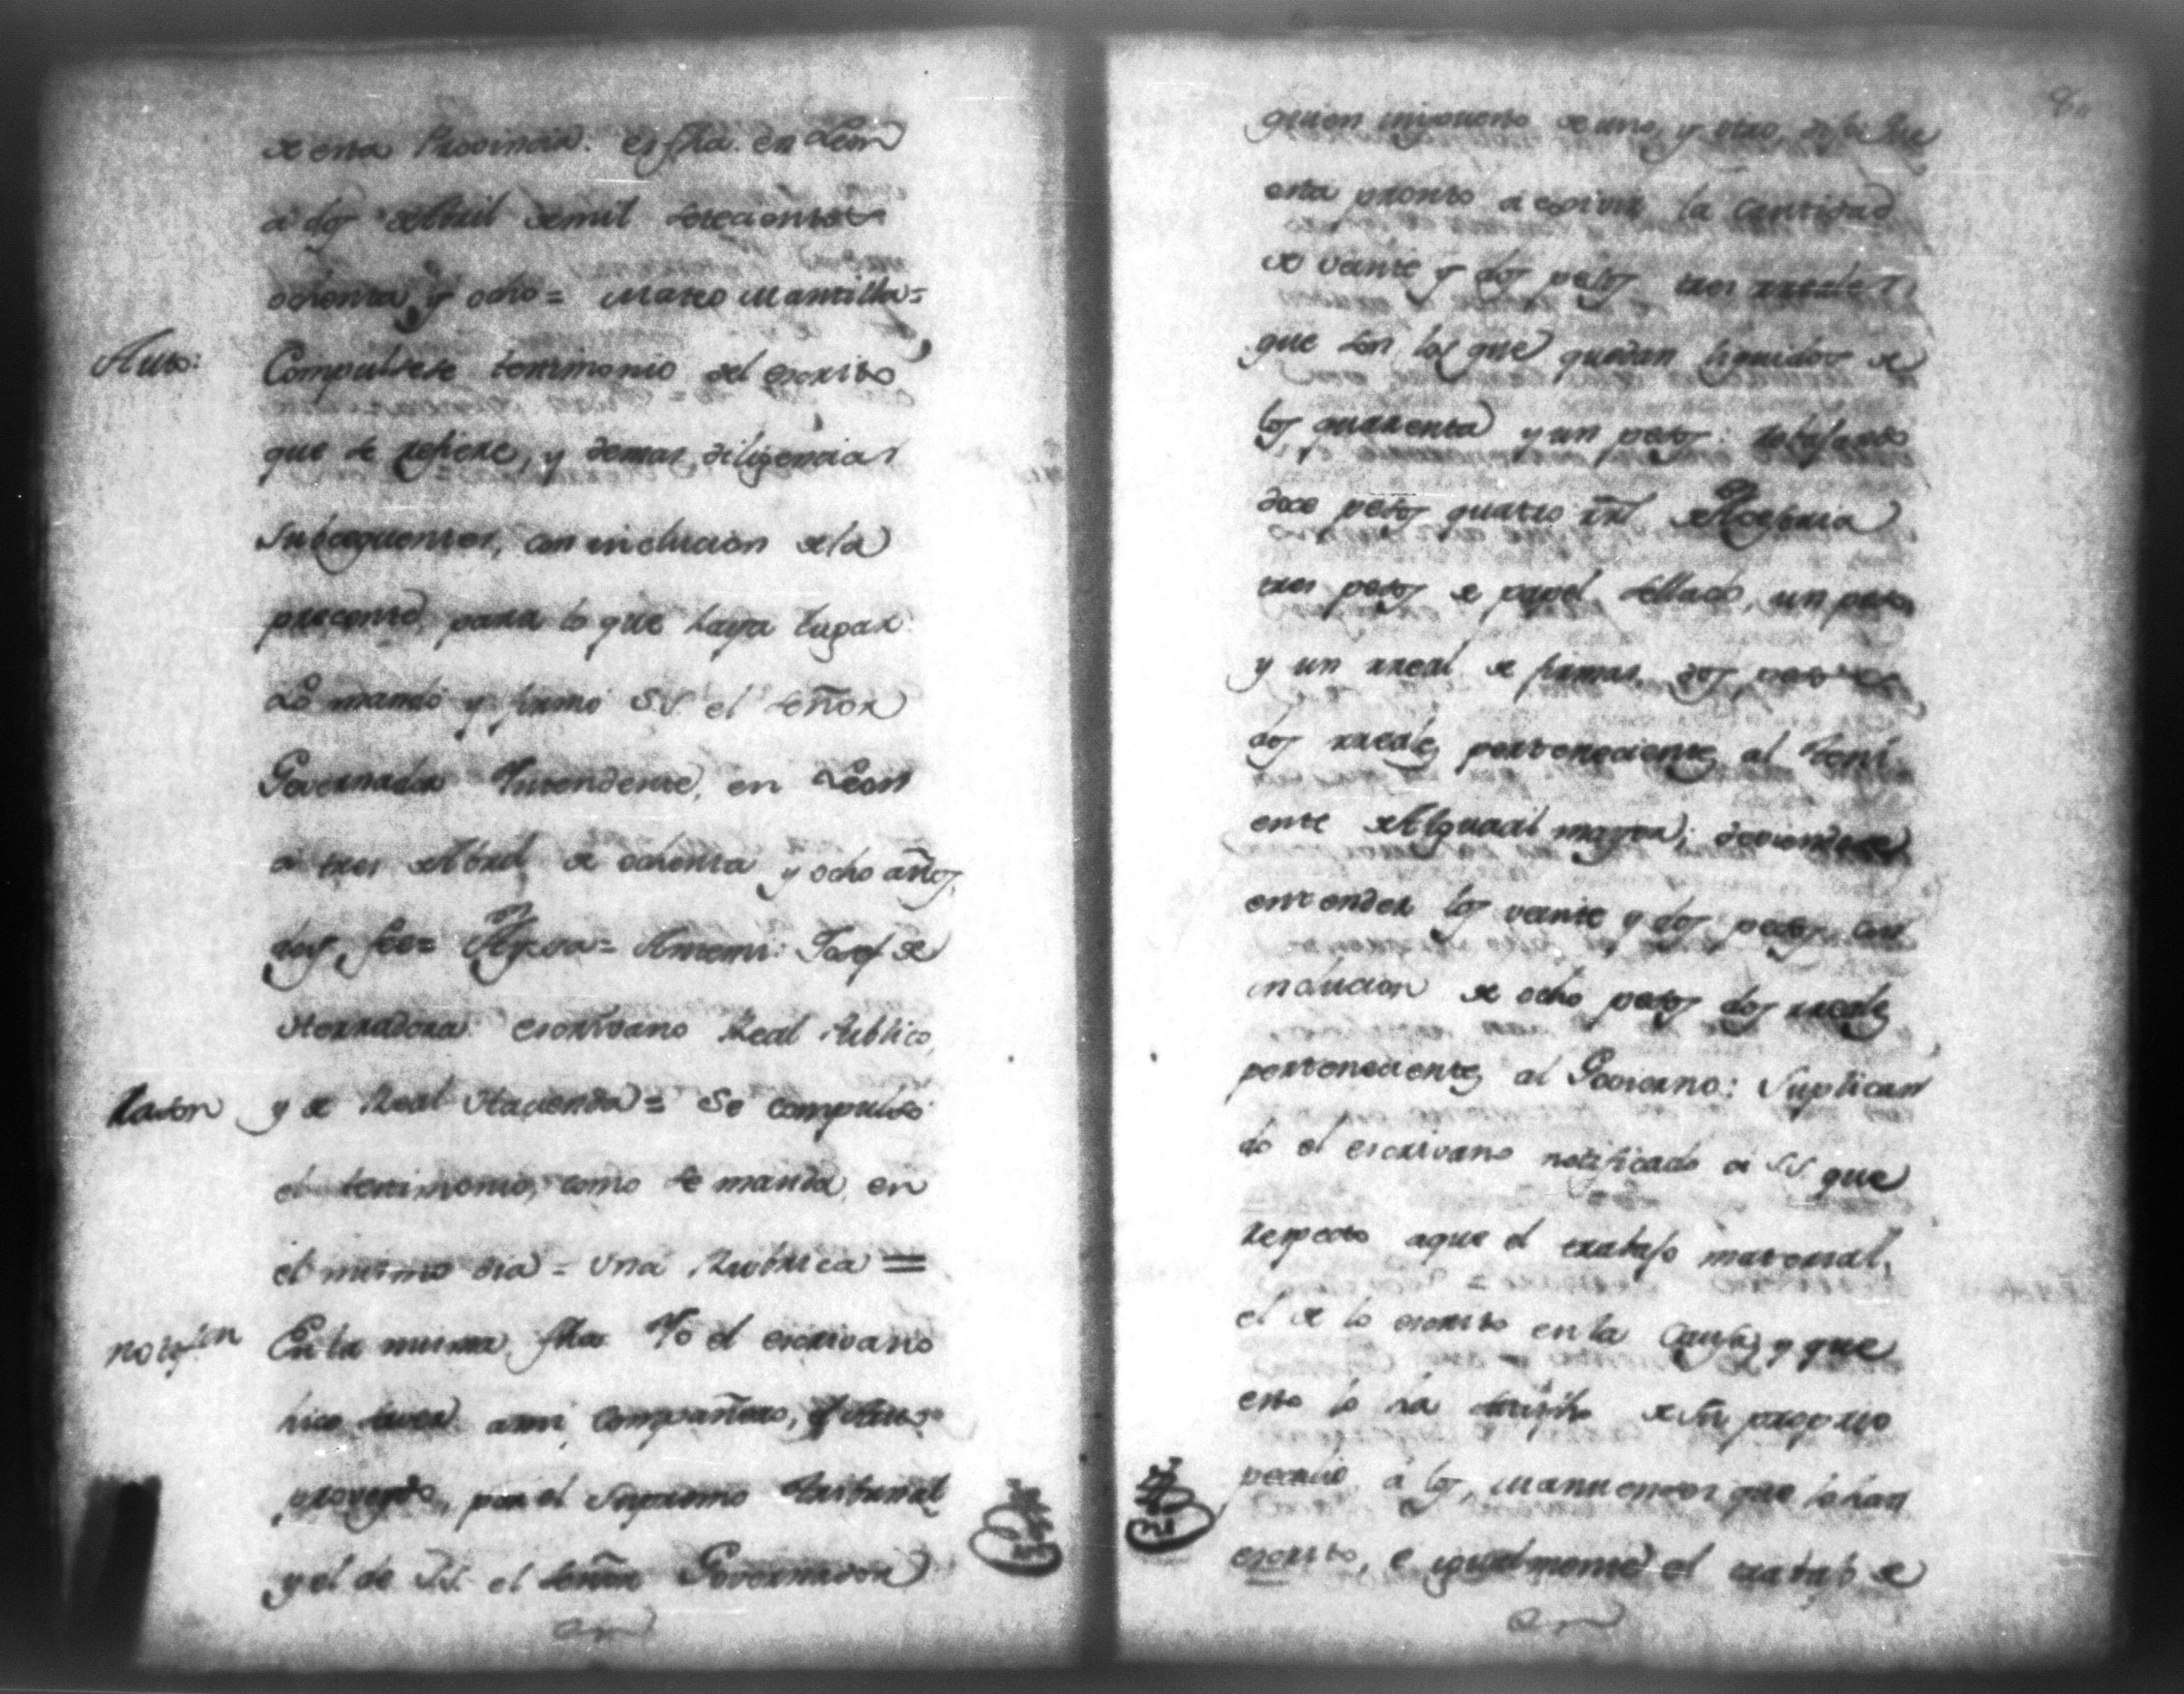 de esta Provincia. es fha. en Leon
a dos de Abril de mil setecientos
ochenta, y ocho = Mateo Mantilla =
Auto: Compulsese testimonio del escrito
que se refiere, y demas diligencias
subsequentes, con inclucion de la
precente, para lo que haya lugar.
Lo mandó y firmó S.S. el Señor
Governador Yntendente, en Leon
a tres de Abril de ochenta y ocho años,
doy fee = Antemi: Josef de
Herradora escrivano Real Publico,
Razon y de Real Hacienda = Se compulsó
el testimonio, como se manda, en
el mismo dia = Una Rubrica =
notifon En la misma fha Yo el escrivano
hice saver ami compañero, el Auto
proveydo, por el Supremo Tribunal
y el de S.S. el Señor Governador
quien impuesto de uno, y otro, dijo: Que
esta pronto a la Cantidad
de veinte y dos pesos tres rreales
que son los que quedan liquidos de
los quarenta y un pesos: rebajados
doce pesos quatro rrs de
tres pesos de papel sellado, un peso
y un rreal de firmas, dos pesos
dos rreales pertenecientes al Teni
ente de Alguacil mayor; deviendose
entender los veinte y dos pesos con
inclucion de ocho pesos dos rreales
pertenecientes al Govierno: Suplican
do el escrivano notificado a S.S. que
respecto aque el trabajo material,
el de lo escrito en la Causa, y que
este lo ha de su proprio
peculio a los, Manuenses que lo han
escrito, e igualmente el trabajo de